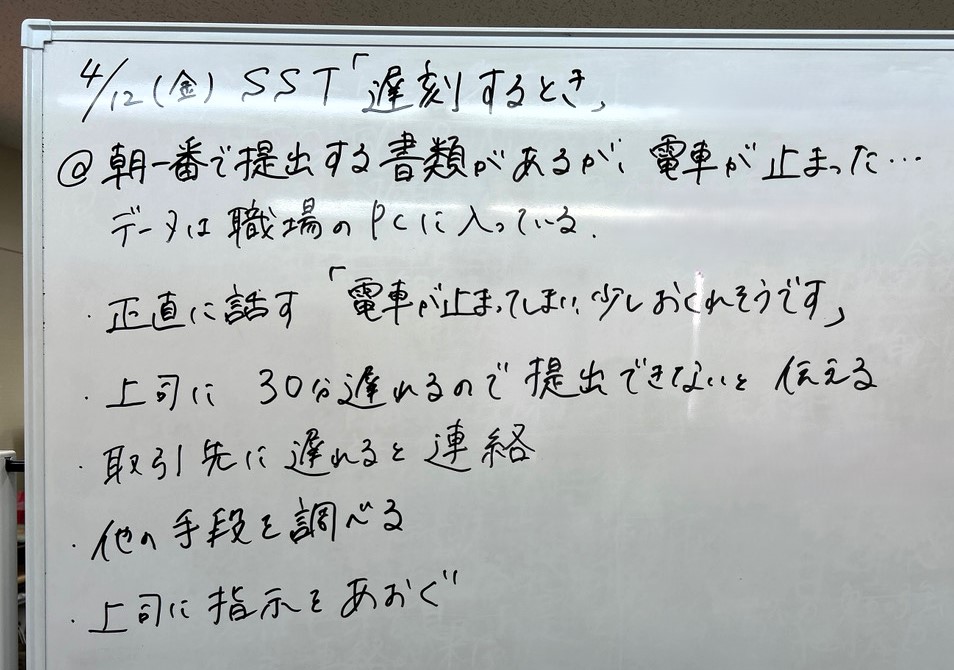 4/12(金) SST「遅刻するとき」
@朝一番で提出する書類があるが、電車が止まった…
データは職場のPCに入っている.
・正直に話す「電車が止まってしまい、少しおくれそうです」
・上司に 30分遅れるので提出できないと 伝える
・取引先に遅れると連絡
・他の手段を調べる
・上司に指示をあおぐ